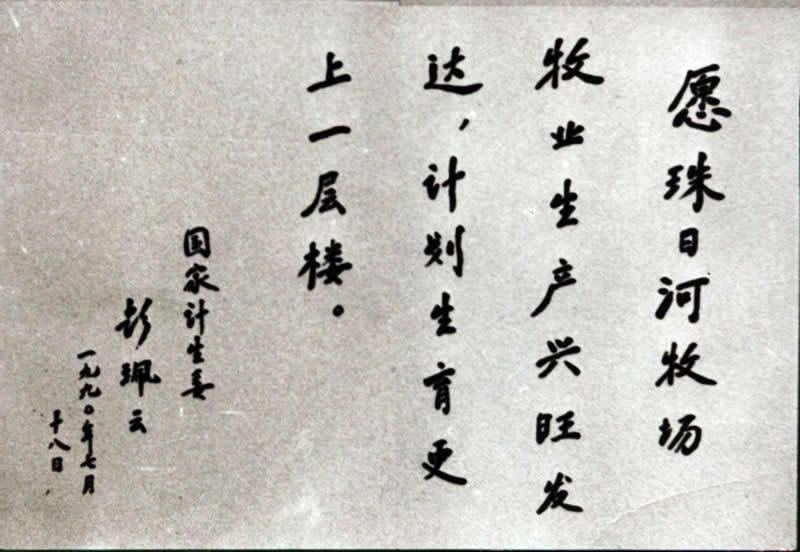 愿珠日河牧场
牧业生产兴旺发
达，计划生育更
上一层楼。
国家计生委
彭珮云
一九九〇年七月
十八日